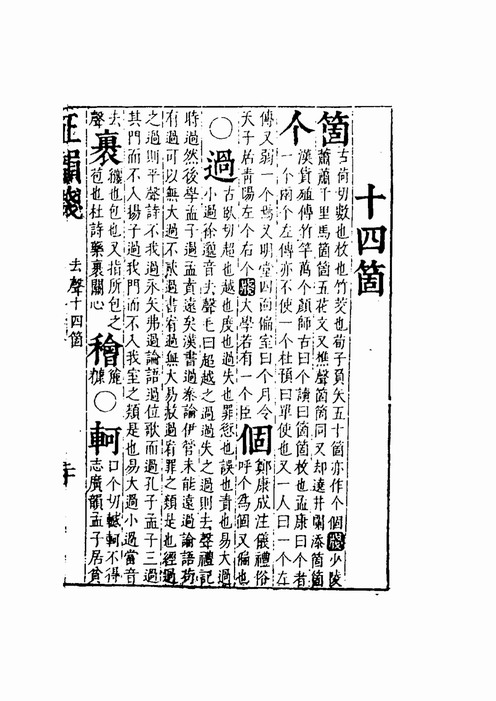 十四箇
箇
古荷切數也枚也竹也荀子負矢五十箇亦作个個牋少陵
蕭蕭千里馬箇箇五花文又樵聲箇箇同又却遶井闌添箇箇
个
漢貨殖傳竹竿萬个顏師古曰个讀曰箇箇枚也孟康曰个者
一个兩个左傳亦不使一个杜預曰單使也又一人曰一个左
傳又弱一个焉又明堂四面偏室曰个月令
天子居青陽左个右个牋大學若有一个臣
個
鄭康成注儀禮俗
呼个為個又偏也
○過
古臥切超也越也度也過失也罪愆也誤也責也易大過
小過徐邈音去聲毛曰超越之過過失之過則去聲禮記
時過然後學孟子過孟賁遠矣漢書過秦論伊管未能遠過論語苟
有過可以無大過不貳過書宥過無大易赦過宥罪之類是也經過
之過則平聲詩不我過永矢弗過論語過位歌而過孔子孟子三過
其門而不入揚子過我門而不入我室之類是也易大過小過當音
去聲
裹
也包也又指所包之
苞也杜詩藥裹關心
○軻
口个切轗軻不得
志廣韻孟子居貧
正韻牋
去聲十四箇